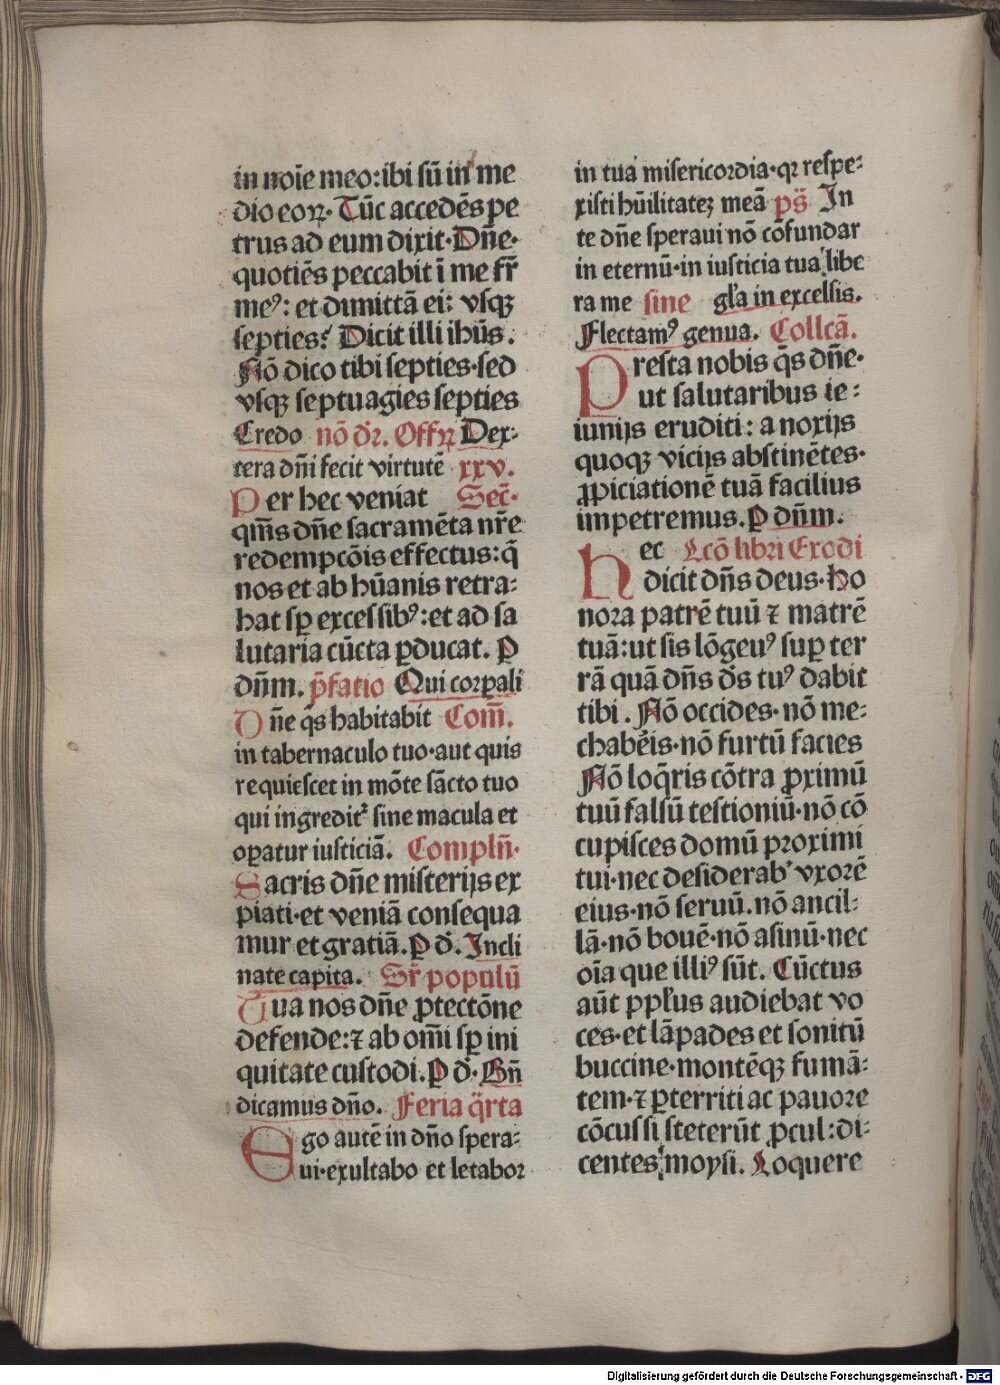 in noīe meo: ibi sū in me
dio eoꝝ. Tūc accedēs pe
trus ad eum dixit. Dn̄e.
quotiēs peccabit ī me fr̄
meꝰ: et dimittā ei: vsqꝫ
septies? Dicit illi ihūs.
Nō dico tibi septies. sed
vsqꝫ septuagies septies
Credo nō dr̄. Offꝝ Dex-
tera dn̄i fecit virtutē xxv.
Per hec veniat Sec̄.
qm̄s dn̄e sacramēta nr̄e
redempcōis effectus: q̄
nos et ab hūanis retra-
hat sꝑ excessibꝰ: et ad sa
lutaria cūcta ꝑducat. P
dn̄m. p̄fatio Qui corꝑali
Dn̄e q̄s habitabit Com̄.
in tabernaculo tuo. aut quis
requiescet in mōte sācto tuo
qui ingreditᷣ sine macula et
oꝑatur iusticiā. Compln̄.
Sacris dn̄e misterijs ex
piati. et veniā consequa
mur et gratiā. P d̄. Incli
nate capita. Sr̄ populū
Tua nos dn̄e ꝓtectōne
defende: ⁊ ab om̄i sꝑ ini
quitate custodi. P d̄. Bn̄
dicamus dn̄o. Feria q̈rta
Ego autē in dn̄o spera-
ui. exultabo et letabor
in tua misericordia. qꝛ respe-
xisti hūilitateꝫ meā ps̄ In
te dn̄e speraui nō cōfundar
in eternū. in iusticia tua libe
ra me sine gl̄a in excelsis.
Flectamꝰ genua. Collcā.
Presta nobis q̄s dn̄e.
ut salutaribus ie-
iunijs eruditi: a noxijs
quoqꝫ vicijs abstinētes.
ꝓpiciationē tuā facilius
impetremus. P dn̄m.
Hec Lcō libri Exodi
dicit dn̄s deus. Ho
nora patrē tuū ⁊ matrē
tuā: ut sis lōgeuꝰ suꝑ ter
rā quā dn̄s d̄s tuꝰ dabit
tibi. Nō occides. nō me-
chabeīs. nō furtū facies
Nō loq̄ris cōtra ꝓximū
tuū falsū testioniū. nō cō
cupisces domū proximi
tui. nec desiderabᷣ vxorē
eius. nō seruū. nō ancil-
lā. nō bouē. nō asinū. nec
oīa que illiꝰ sūt. Cūctus
aūt ppl̄us audiebat vo
ces. et lāpades et sonitū
buccine. montēqꝫ fumā-
tem. ⁊ ꝑterriti ac pauore
cōcussi steterūt ꝓcul: di-
centes moysi. Loquere
Digitalisierung gefördert durch die Deutsche Forschungsgemeinschaft - DFG